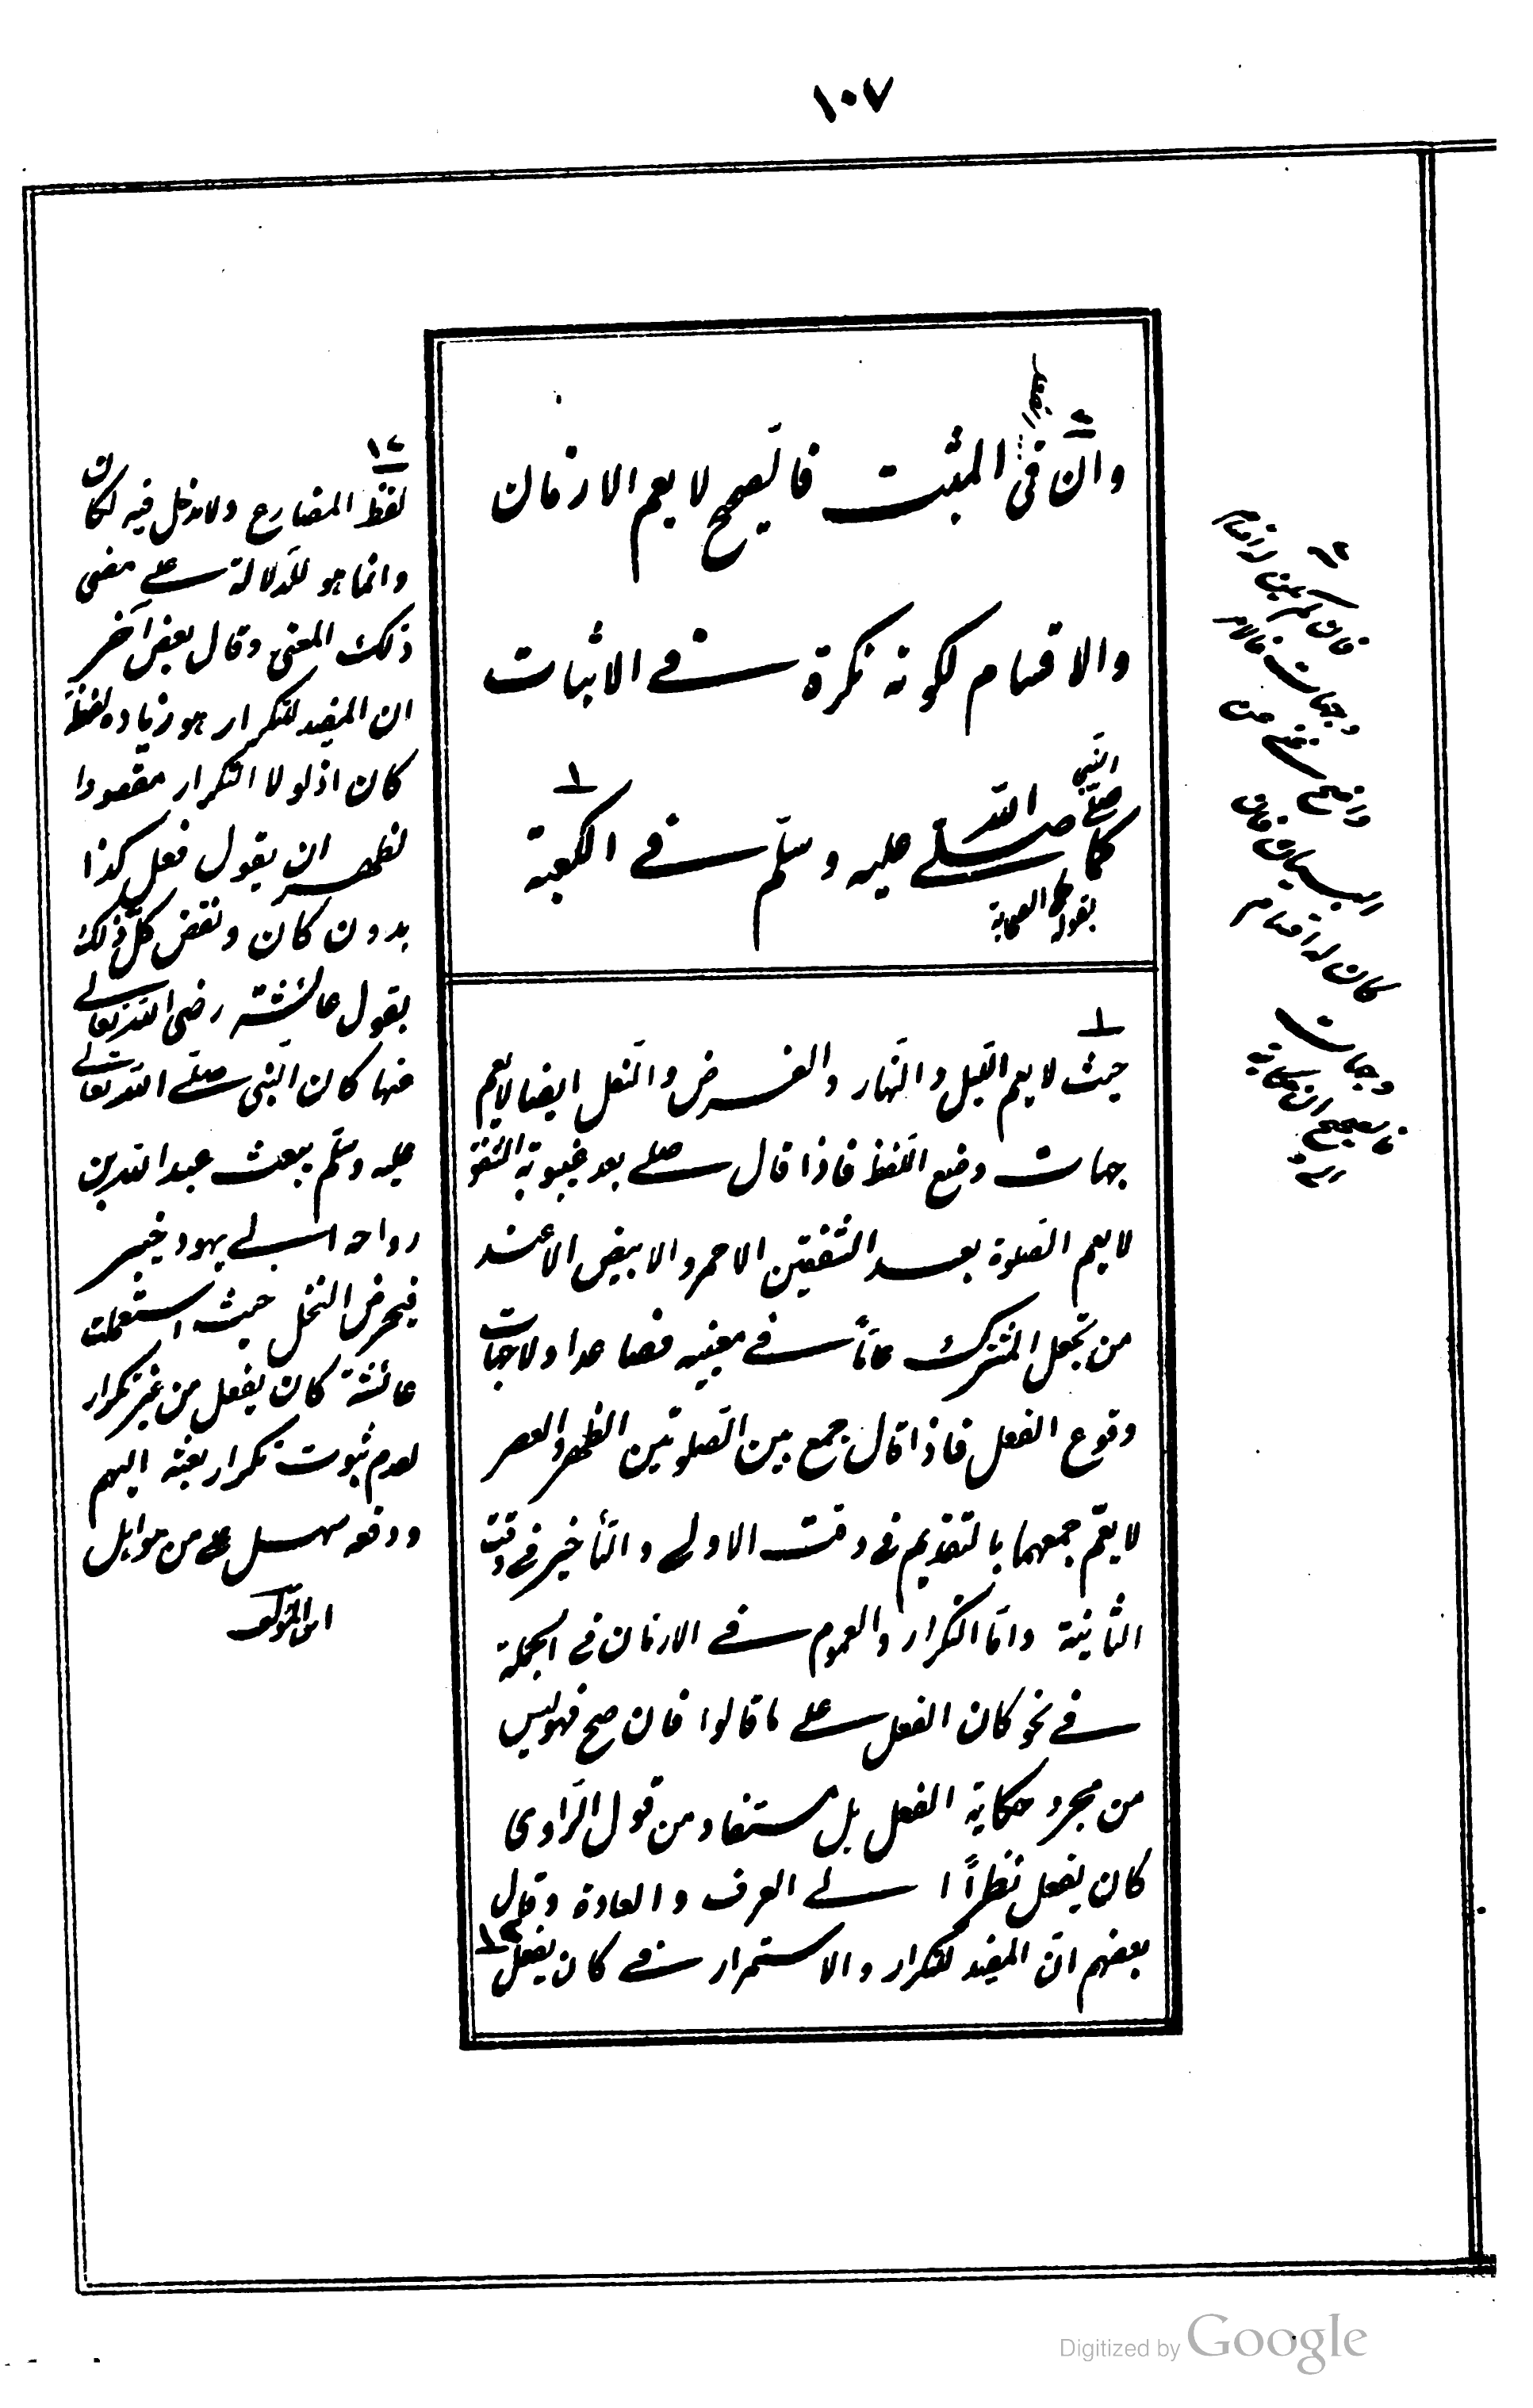 ١٠٧
وانّ فى المثبت فالصّحيح لا يعم الازمان
والاقسام لكونه نكرة فے الاثبات
النبي
كما صلّى صلے الله عليه وسلّم فے الكعبة
بقول الصحابة
١
حيث لا يعم الليل والنهار والفرض والنفل ايضا لا يعم
جهات وضع اللفظ فاذا قال صلے بعد غيبوبة الشفق
لا يعم الصّلوة بعد الشفقين الاحمر والابيض الا عند
من تجعل المشترك عامّاً فے معنييه فصاعدا ولا جهات
وقوع الفعل فاذا قال جمع بين الصّلوتين الظهر والعصر
لا يعمّ جمعهما بالتقديم فى وقت الاولى والتأخير فے وقت
الثانية وامّا التكرار والعموم فے الازمان فى الجملة
فے نحو كان الفعل علے ما قالوا فان صح فهو ليس
من مجرد حكاية الفعل بل مستفاد من قول الرّاوى
كان يفعل نظراً الے العرف والعادة وقال
بعضهم انّ المفيد للتكرار والاستمرار فے كان يفعل
١٢
لفظ المضارع ولا دخل فيه لكان
وانما هو للدّلالة علے مضى
ذلك المعنى وقال بعض آخر
ان المفيد للتكرار هو زيادة لفظة
كان اذ لولا التكرار مقصودا
لظهر ان يقول فعل كذا
بدون كان ونقض كلّ ذلك
بقول عائشة رضى الله تعالے
عنها كان النّبى صلّے الله تعالے
عليه وسلّم يبعث عبد الله بن
رواحه الے يهود خيبر
فيخرص النخل حيث استعملت
عائشة كان يفعل من غير تكرار
لعدم ثبوت تكرار بعثه اليهم
ودفعه سهل من
فان له اقسام
وجهات
واضح من
السياق فان
كان له اقسام
وجهات
فالصحيح ان حكاية
Digitized by Google